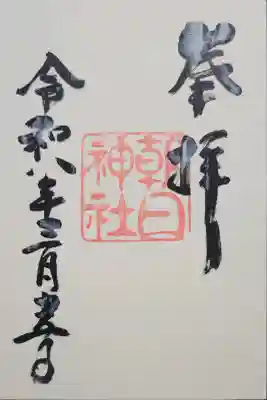 奉拝
朝日神社
令和八年三月五日